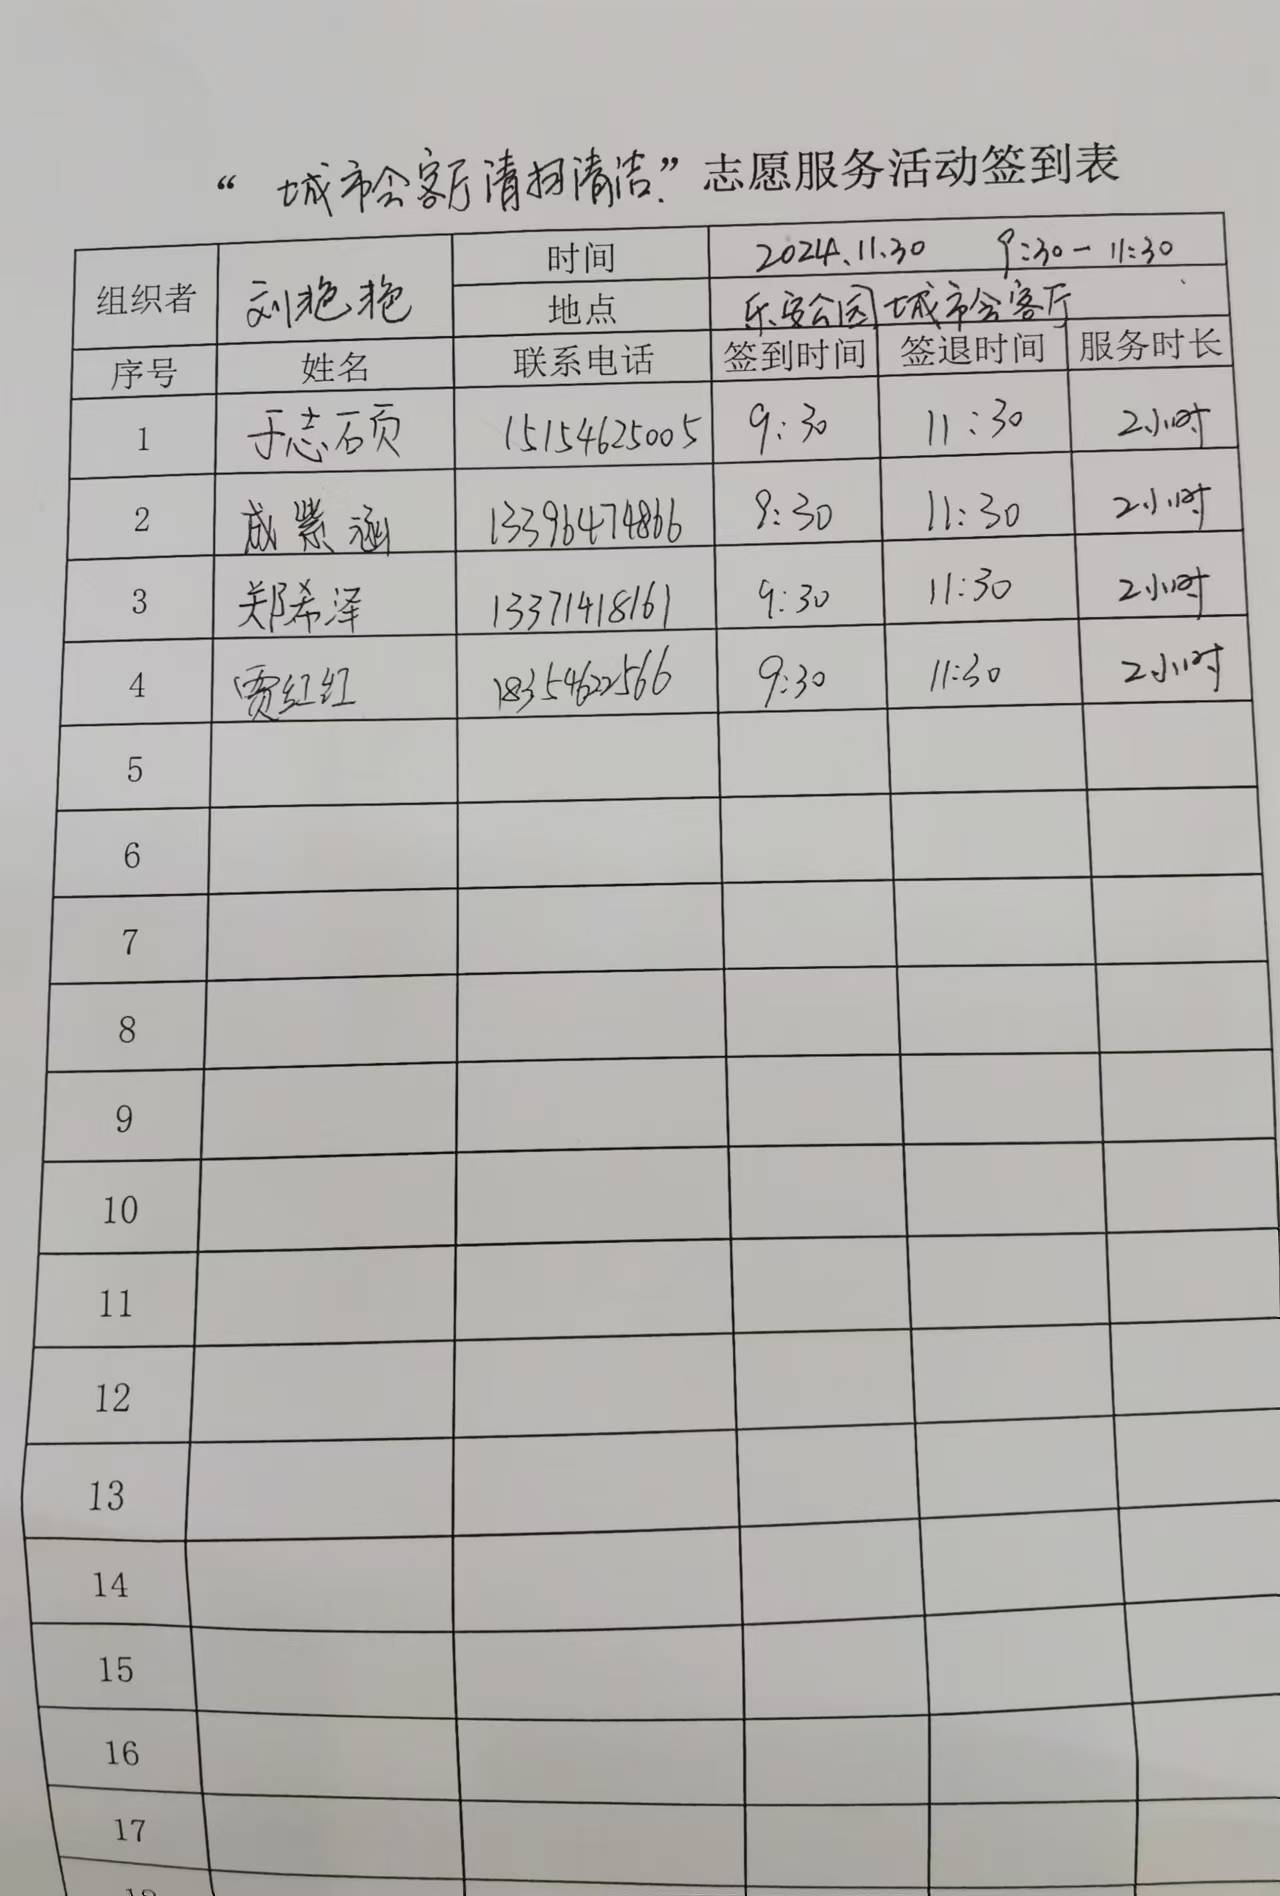 “城市会客厅清扫清洁.”志愿服务活动签到表
组织者 刘艳艳 时间 2024.11.30 9:30-11:30
地点 乐安公园城市会客厅
序号 姓名 联系电话 签到时间 签退时间 服务时长
1 于志硕 15154625005 9:30 11:30 2小时
2 成紫涵 13396474866 9:30 11:30 2小时
3 郑希泽 13371418161 9:30 11:30 2小时
4 贾红红 18354622566 9:30 11:30 2小时
5
6
7
8
9
10
11
12
13
14
15
16
17
18